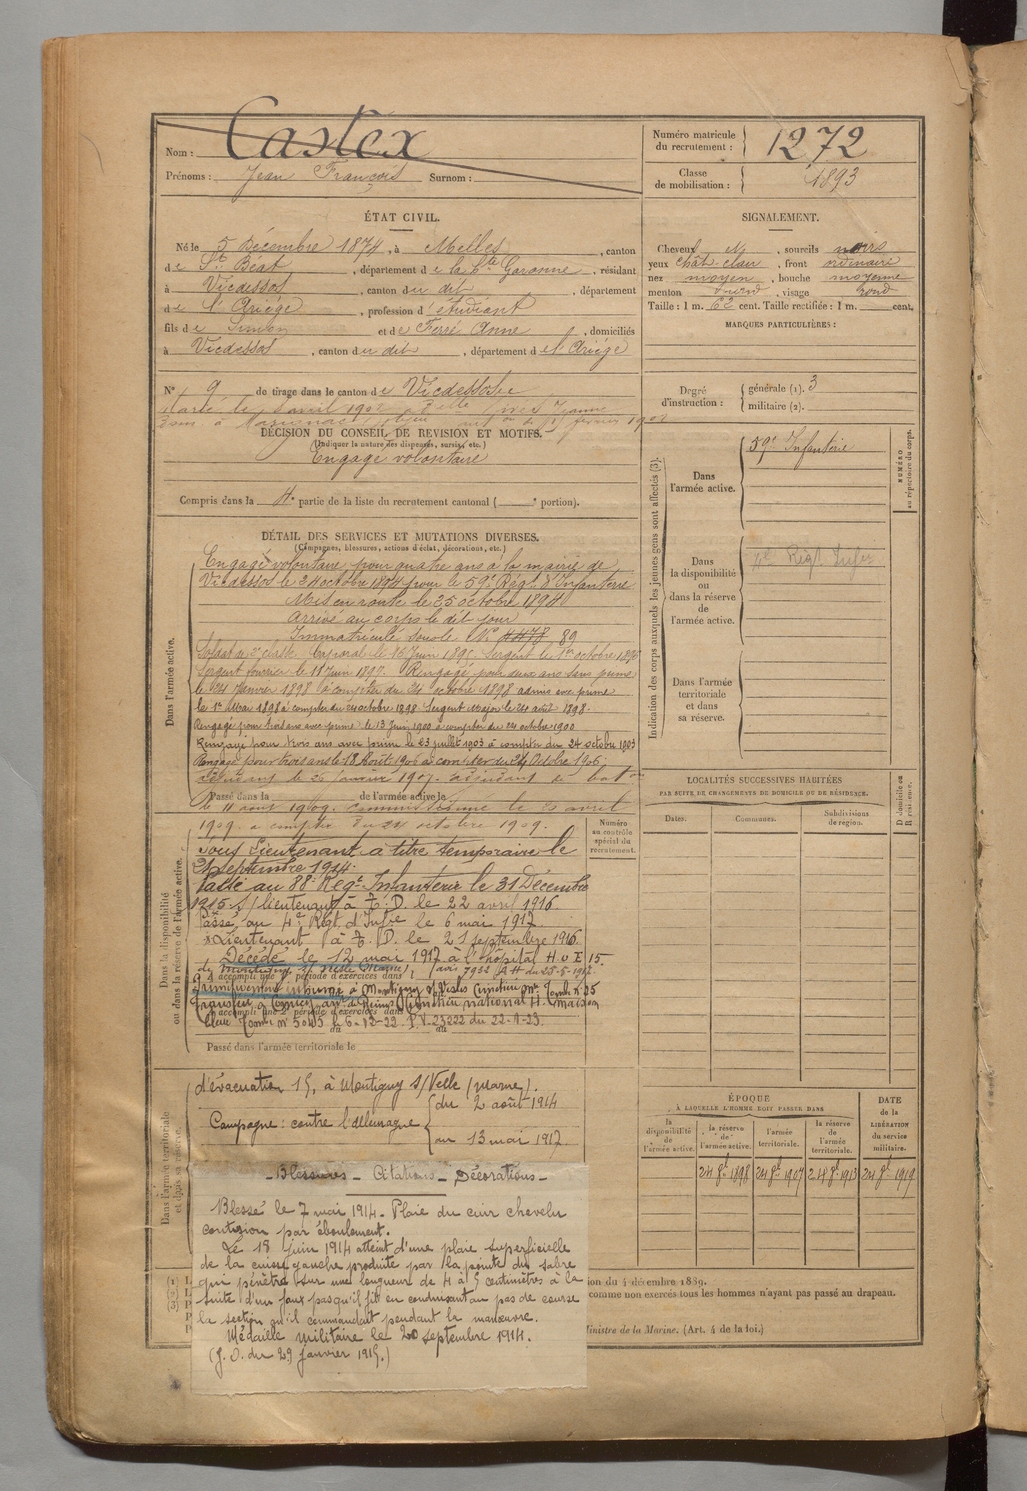 Nom : Castex
Prénoms : Jean François Surnom :
Numéro matricule du recrutement : 1272
Classe de mobilisation : 1893
ÉTAT CIVIL.
Né le 5 Décembre 1874, à Melles, canton
de St Béat, département de la Hte Garonne, résidant
à Vicdessos, canton du dit, département
de l'Ariège, profession d'étudiant
fils de Simon et de Ferré Anne, domiciliés
à Vicdessos, canton du dit, département de l'Ariège
SIGNALEMENT.
Cheveux N, sourcils noirs
yeux chât. clair, front ordinaire
nez moyen, bouche moyenne
menton rond, visage rond
Taille : 1 m. 62 cent. Taille rectifiée : 1 m. cent.
MARQUES PARTICULIÈRES :
No 9 de tirage dans le canton de Vicdessos
Marié le avril 1902 à Jeanne
février 1902
DÉCISION DU CONSEIL DE REVISION ET MOTIFS.
(Indiquer la nature des dispenses, sursis, etc.)
Engagé volontaire
Compris dans la 4e partie de la liste du recrutement cantonal ( e portion).
Degré d'instruction : générale (1). 3
militaire (2).
DÉTAIL DES SERVICES ET MUTATIONS DIVERSES.
(Campagnes, blessures, actions d'éclat, décorations, etc.)
Dans l'armée active.
Engagé volontaire pour quatre ans à la mairie de
Vicdessos le 24 octobre 1894 pour le 59e Régt d'Infanterie
Mis en route le 25 octobre 1894
Arrivé au corps le dit jour
Immatriculé sous le No 89
Soldat de 2e classe. Caporal le 16 Juin 1895. Sergent le 1er octobre 1896
Sergent fourrier le 11 Juin 1897. Rengagé pour deux ans sans prime
le 24 Janvier 1898 à compter du 24 octobre 1898 admis avec prime
le 1er Mai 1898 à compter du 24 octobre 1898. Sergent Major le 24 août 1898.
Rengagé pour trois ans avec prime le 13 Juin 1900 à compter du 24 octobre 1900
Rengagé pour trois ans avec prime le 23 juillet 1903 à compter du 24 octobre 1903
Rengagé pour trois ans le 18 Août 1906 à compter du 24 Octobre 1906.
Adjudant le 25 janvier 1907. Adjudant de baton
Passé dans la de l'armée active le
le 11 août 1909. commissionné le 20 avril
1909 à compter du 24 octobre 1909.
Numéro au contrôle spécial du recrutement.
Dans la disponibilité ou dans la réserve de l'armée active.
Sous Lieutenant à titre temporaire le
septembre 1914.
Passé au 88e Régt Infanterie le 31 Décembre
1915 S/lieutenant à T. D. le 22 avril 1916.
Passé au 4e Régt. d'Infie le 6 mai 1917.
Lieutenant à T. D. le 21 septembre 1916.
Décédé le 12 mai 1917 à l'hôpital H o E 15.
de Montigny s/ Vesle (Marne) (avis 7932 du 25-5-1917
A accompli une 1re période d'exercices dans
Primitivement inhumé à Montigny s/ Vesles Cimetière Mre. Tombe No 25
Transféré à Cormicy arrt de Reims Cimetière national H. Maison
A accompli une 2e période d'exercices dans
Bleue Tombe No 5045 le 6-12-22. P.V. 23222 du 22-1-23.
Passé dans l'armée territoriale le
Dans l'armée territoriale et dans sa réserve.
d'évacuation 15, à Montigny s/Velle (Marne).
Campagne : contre l'Allemagne
du 2 août 1914
au 13 mai 1917.
Blessures - Citations - Décorations -
Blessé le 7 mai 1914. Plaie du cuir chevelu
contusion par éboulement.
Le 18 juin 1914 atteint d'une plaie superficielle
de la cuisse gauche produite par la pointe du sabre
qui pénètre sur une longueur de 4 à 5 centimètres à la
suite d'un faux pas qu'il fit en conduisant au pas de course
la section qu'il commandait pendant la manœuvre.
Médaille militaire le 20 septembre 1914.
(J. O. du 29 Janvier 1915.)
Indication des corps auxquels les jeunes gens sont affectés (3).
NUMÉRO au répertoire du corps.
Dans l'armée active.
59e Infanterie
Dans la disponibilité ou dans la réserve de l'armée active.
4e Régt Infie
Dans l'armée territoriale et dans sa réserve.
LOCALITÉS SUCCESSIVES HABITÉES
PAR SUITE DE CHANGEMENTS DE DOMICILE OU DE RÉSIDENCE.
Dates. Communes. Subdivisions de région. D domicile ou R résidence.
ÉPOQUE
À LAQUELLE L'HOMME DOIT PASSER DANS
la disponibilité de l'armée active. la réserve de l'armée active. l'armée territoriale. la réserve de l'armée territoriale.
DATE de la LIBÉRATION du service militaire.
24 8e 1898 24 8e 1907 24 8e 1913 24 8e 1919
ion du 4 décembre 1889.
comme non exercés tous les hommes n'ayant pas passé au drapeau.
Ministre de la Marine. (Art. 4 de la loi.)